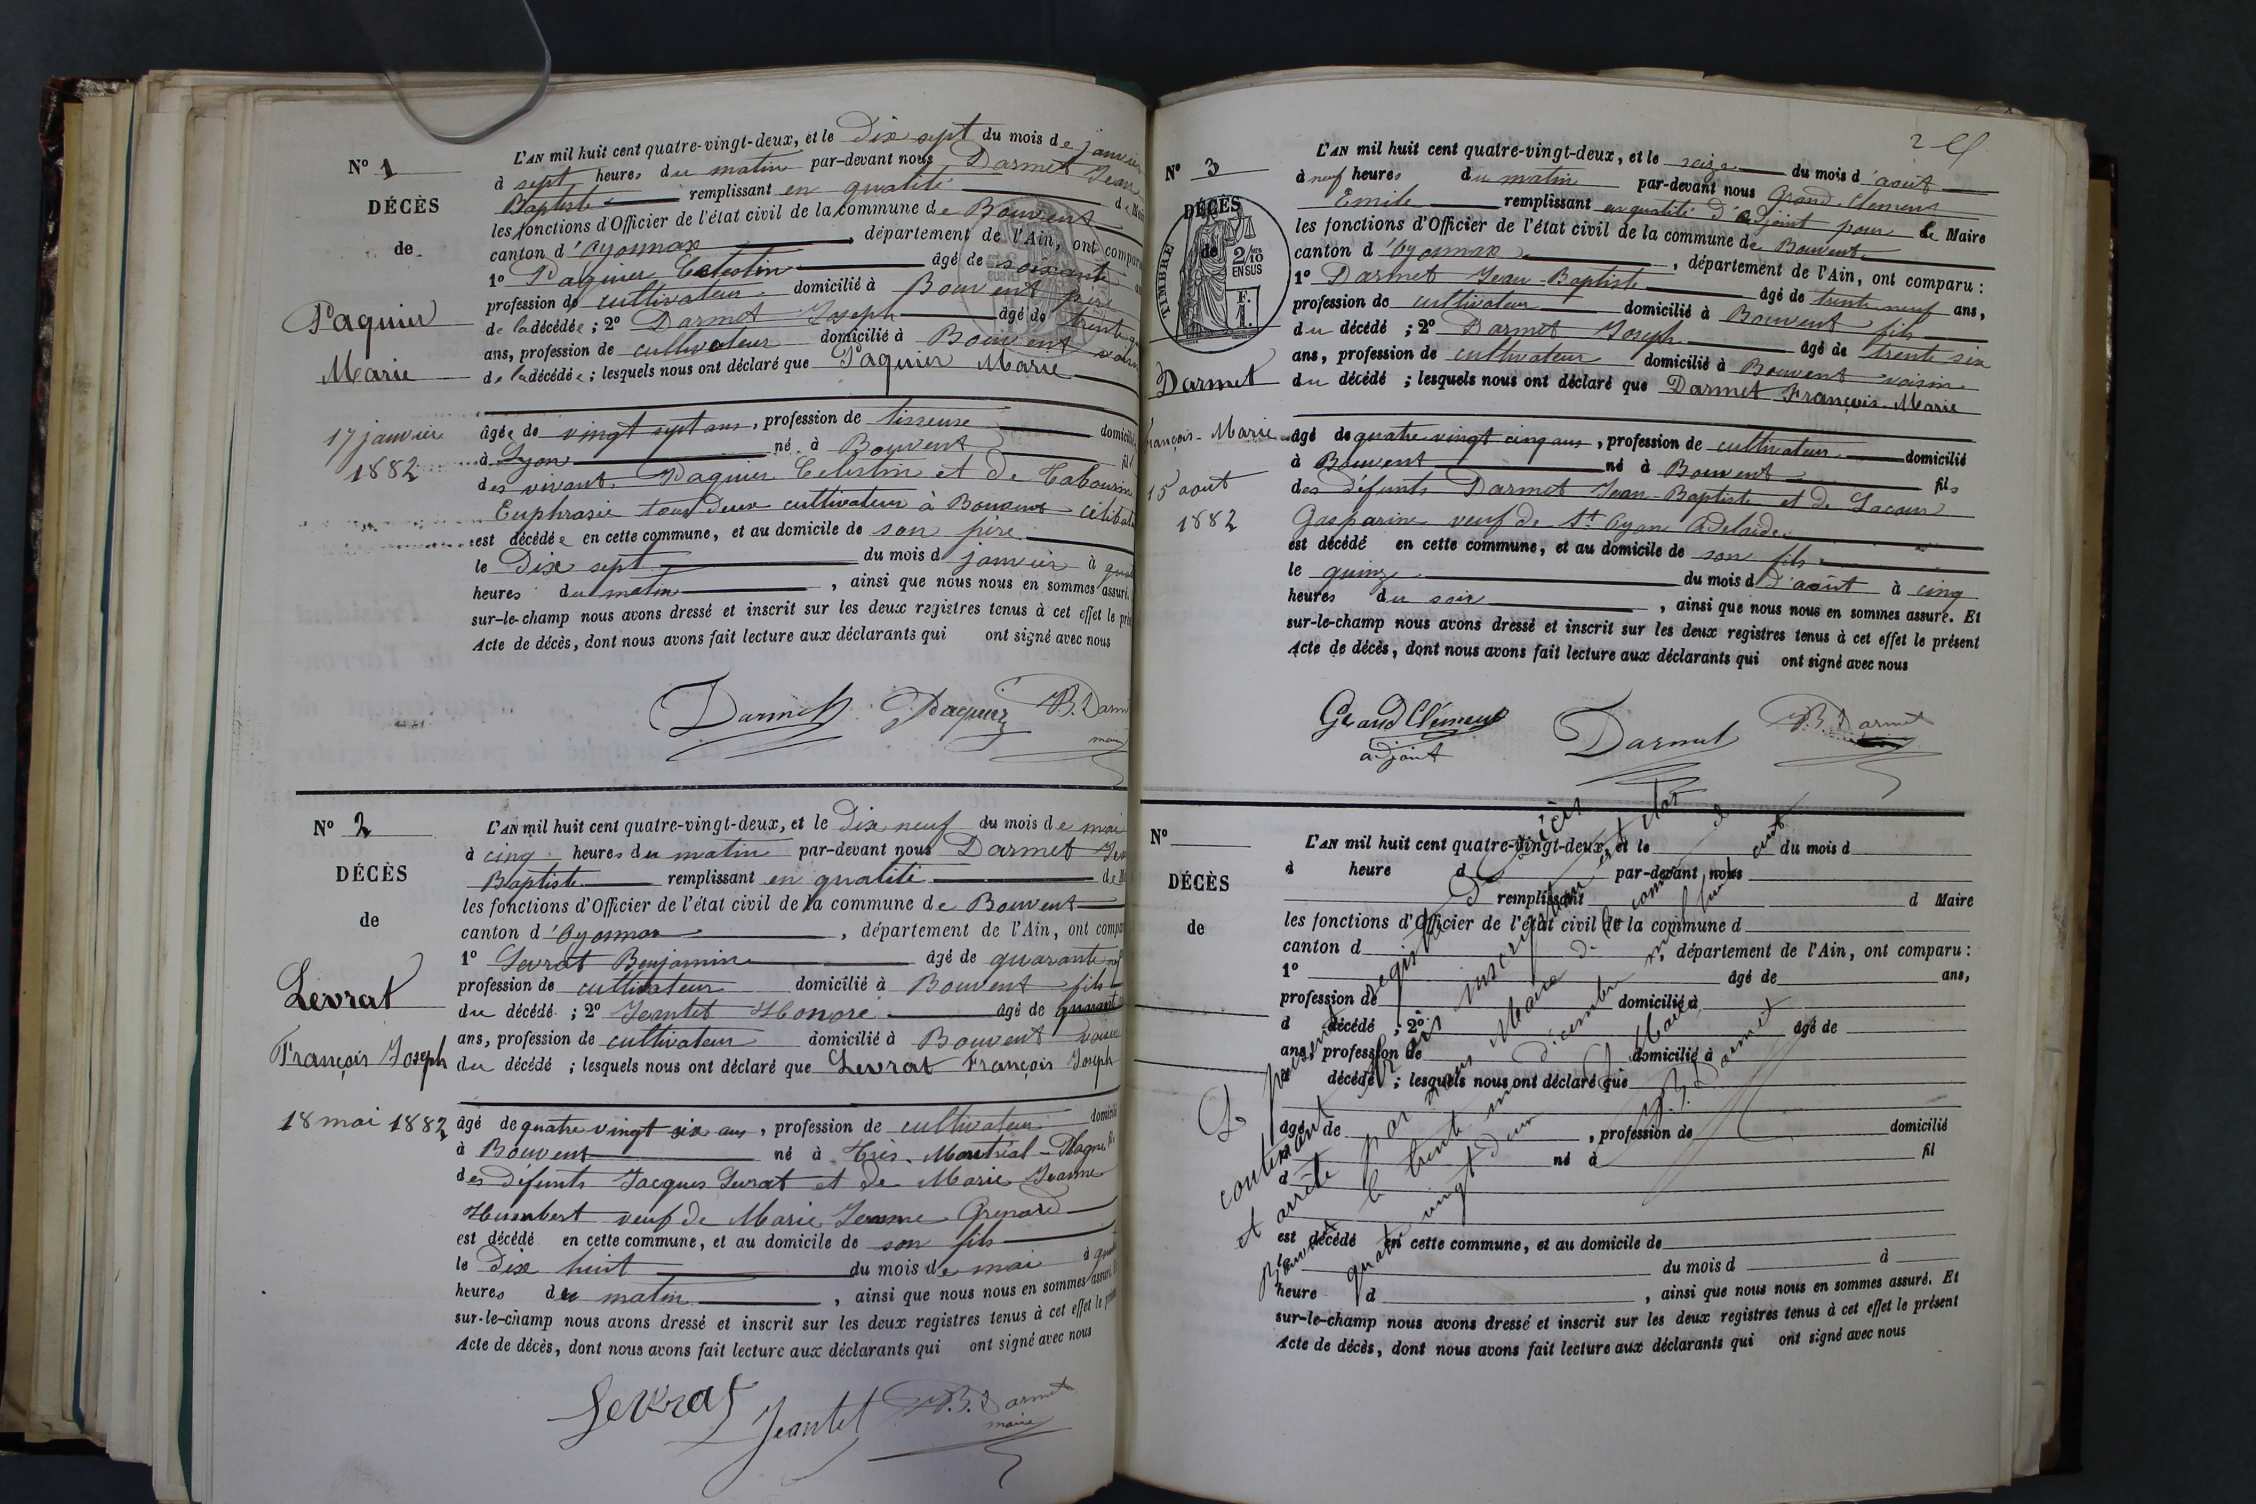 N° 1
DÉCÈS
de
Paquier
Marie
17 janvier
1882
L'AN mil huit cent quatre-vingt-deux, et le Dix sept du mois de janvier
à sept heures du matin par-devant nous Darmet Jean
Baptiste remplissant en qualité de
les fonctions d'Officier de l'état civil de la commune de Bouvent
canton d'Oyonnax, département de l'Ain, ont
1° Paquier Celestin âgé de soixante
profession de cultivateur domicilié à Bouvent père
de la décédée ; 2° Darmet Joseph âgé de
ans, profession de cultivateur domicilié à Bouvent
de la décédée ; lesquels nous ont déclaré que Paquier Marie
âgée de vingt sept ans, profession de tisseuse
à Lyon né à Bouvent
des vivants Paquier Celestin et de
Euphrasie tous deux cultivateur à Bouvent
est décédée en cette commune, et au domicile de son père
le Dix sept du mois d janvier à
heures du matin, ainsi que nous nous en sommes assuré.
sur-le-champ nous avons dressé et inscrit sur les deux registres tenus à cet effet le
Acte de décès, dont nous avons fait lecture aux déclarants qui ont signé avec nous
Darmet C. Paquier JB. Darm
N° 2
DÉCÈS
de
Levrat
François Joseph
18 mai 1882
L'AN mil huit cent quatre-vingt-deux, et le Dix neuf du mois de mai
à cinq heures du matin par-devant nous Darmet
Baptiste remplissant en qualité de
les fonctions d'Officier de l'état civil de la commune de Bouvent
canton d'Oyonnax, département de l'Ain, ont
1° Levrat Benjamin âgé de quarante
profession de cultivateur domicilié à Bouvent fils
du décédé ; 2° Jeantet Honoré âgé de
ans, profession de cultivateur domicilié à Bouvent voisin
du décédé ; lesquels nous ont déclaré que Levrat François Joseph
âgé de quatre vingt six ans, profession de cultivateur
à Bouvent né à
des défunts Jacques Levrat et de Marie Jeanne
Humbert veuf de Marie Jeanne Grenard
est décédé en cette commune, et au domicile de son fils
le Dix huit du mois de mai à
heures du matin, ainsi que nous nous en sommes assuré.
sur-le-champ nous avons dressé et inscrit sur les deux registres tenus à cet effet le
Acte de décès, dont nous avons fait lecture aux déclarants qui ont signé avec nous
Levrat Jeantet JB. Darmet
maire
N° 3
DÉCÈS
de
TIMBRE
2/10
EN SUS
F.
1.
Darmet
François-Marie
15 aout
1882
L'AN mil huit cent quatre-vingt-deux, et le seize du mois d'août
à neuf heures du matin par-devant nous Grand-Clément
Emile remplissant en qualité d'adjoint pour le Maire
les fonctions d'Officier de l'état civil de la commune de Bouvent
canton d'Oyonnax, département de l'Ain, ont comparu :
1° Darmet Jean-Baptiste âgé de trente neuf ans,
profession de cultivateur domicilié à Bouvent fils
du décédé ; 2° Darmet Joseph âgé de trente six
ans, profession de cultivateur domicilié à Bouvent voisin
du décédé ; lesquels nous ont déclaré que Darmet François-Marie
âgé de quatre vingt cinq ans, profession de cultivateur domicilié
à Bouvent né à Bouvent fils
des défunts Darmet Jean-Baptiste et de Lacour
Gasparine veuf de St. Oyan Adelaïde
est décédé en cette commune, et au domicile de son fils
le quinze du mois d d'août à cinq
heures du soir, ainsi que nous nous en sommes assuré. Et
sur-le-champ nous avons dressé et inscrit sur les deux registres tenus à cet effet le présent
Acte de décès, dont nous avons fait lecture aux déclarants qui ont signé avec nous
Grand Clément
adjoint
Darmet JB. Darmet
N°
DÉCÈS
de
L'AN mil huit cent quatre-vingt-deux, et le du mois d
à heure d par-devant nous
remplissant d Maire
les fonctions d'Officier de l'état civil de la commune d
canton d, département de l'Ain, ont comparu :
1° âgé de ans,
profession de domicilié à
d décédé ; 2° âgé de
ans, profession de domicilié à
d décédé ; lesquels nous ont déclaré que
âgé de, profession de domicilié
à né à fil
d
est décédé en cette commune, et au domicile de
le du mois d à
heure d, ainsi que nous nous en sommes assuré. Et
sur-le-champ nous avons dressé et inscrit sur les deux registres tenus à cet effet le présent
Acte de décès, dont nous avons fait lecture aux déclarants qui ont signé avec nous
Le présent registre de décès
contenant trois inscriptions est clos
et arrêté par nous Maire de la commune de
Bouvent le trente un décembre mil huit cent
quatre vingt deux
Le Maire
J.B. Darmet